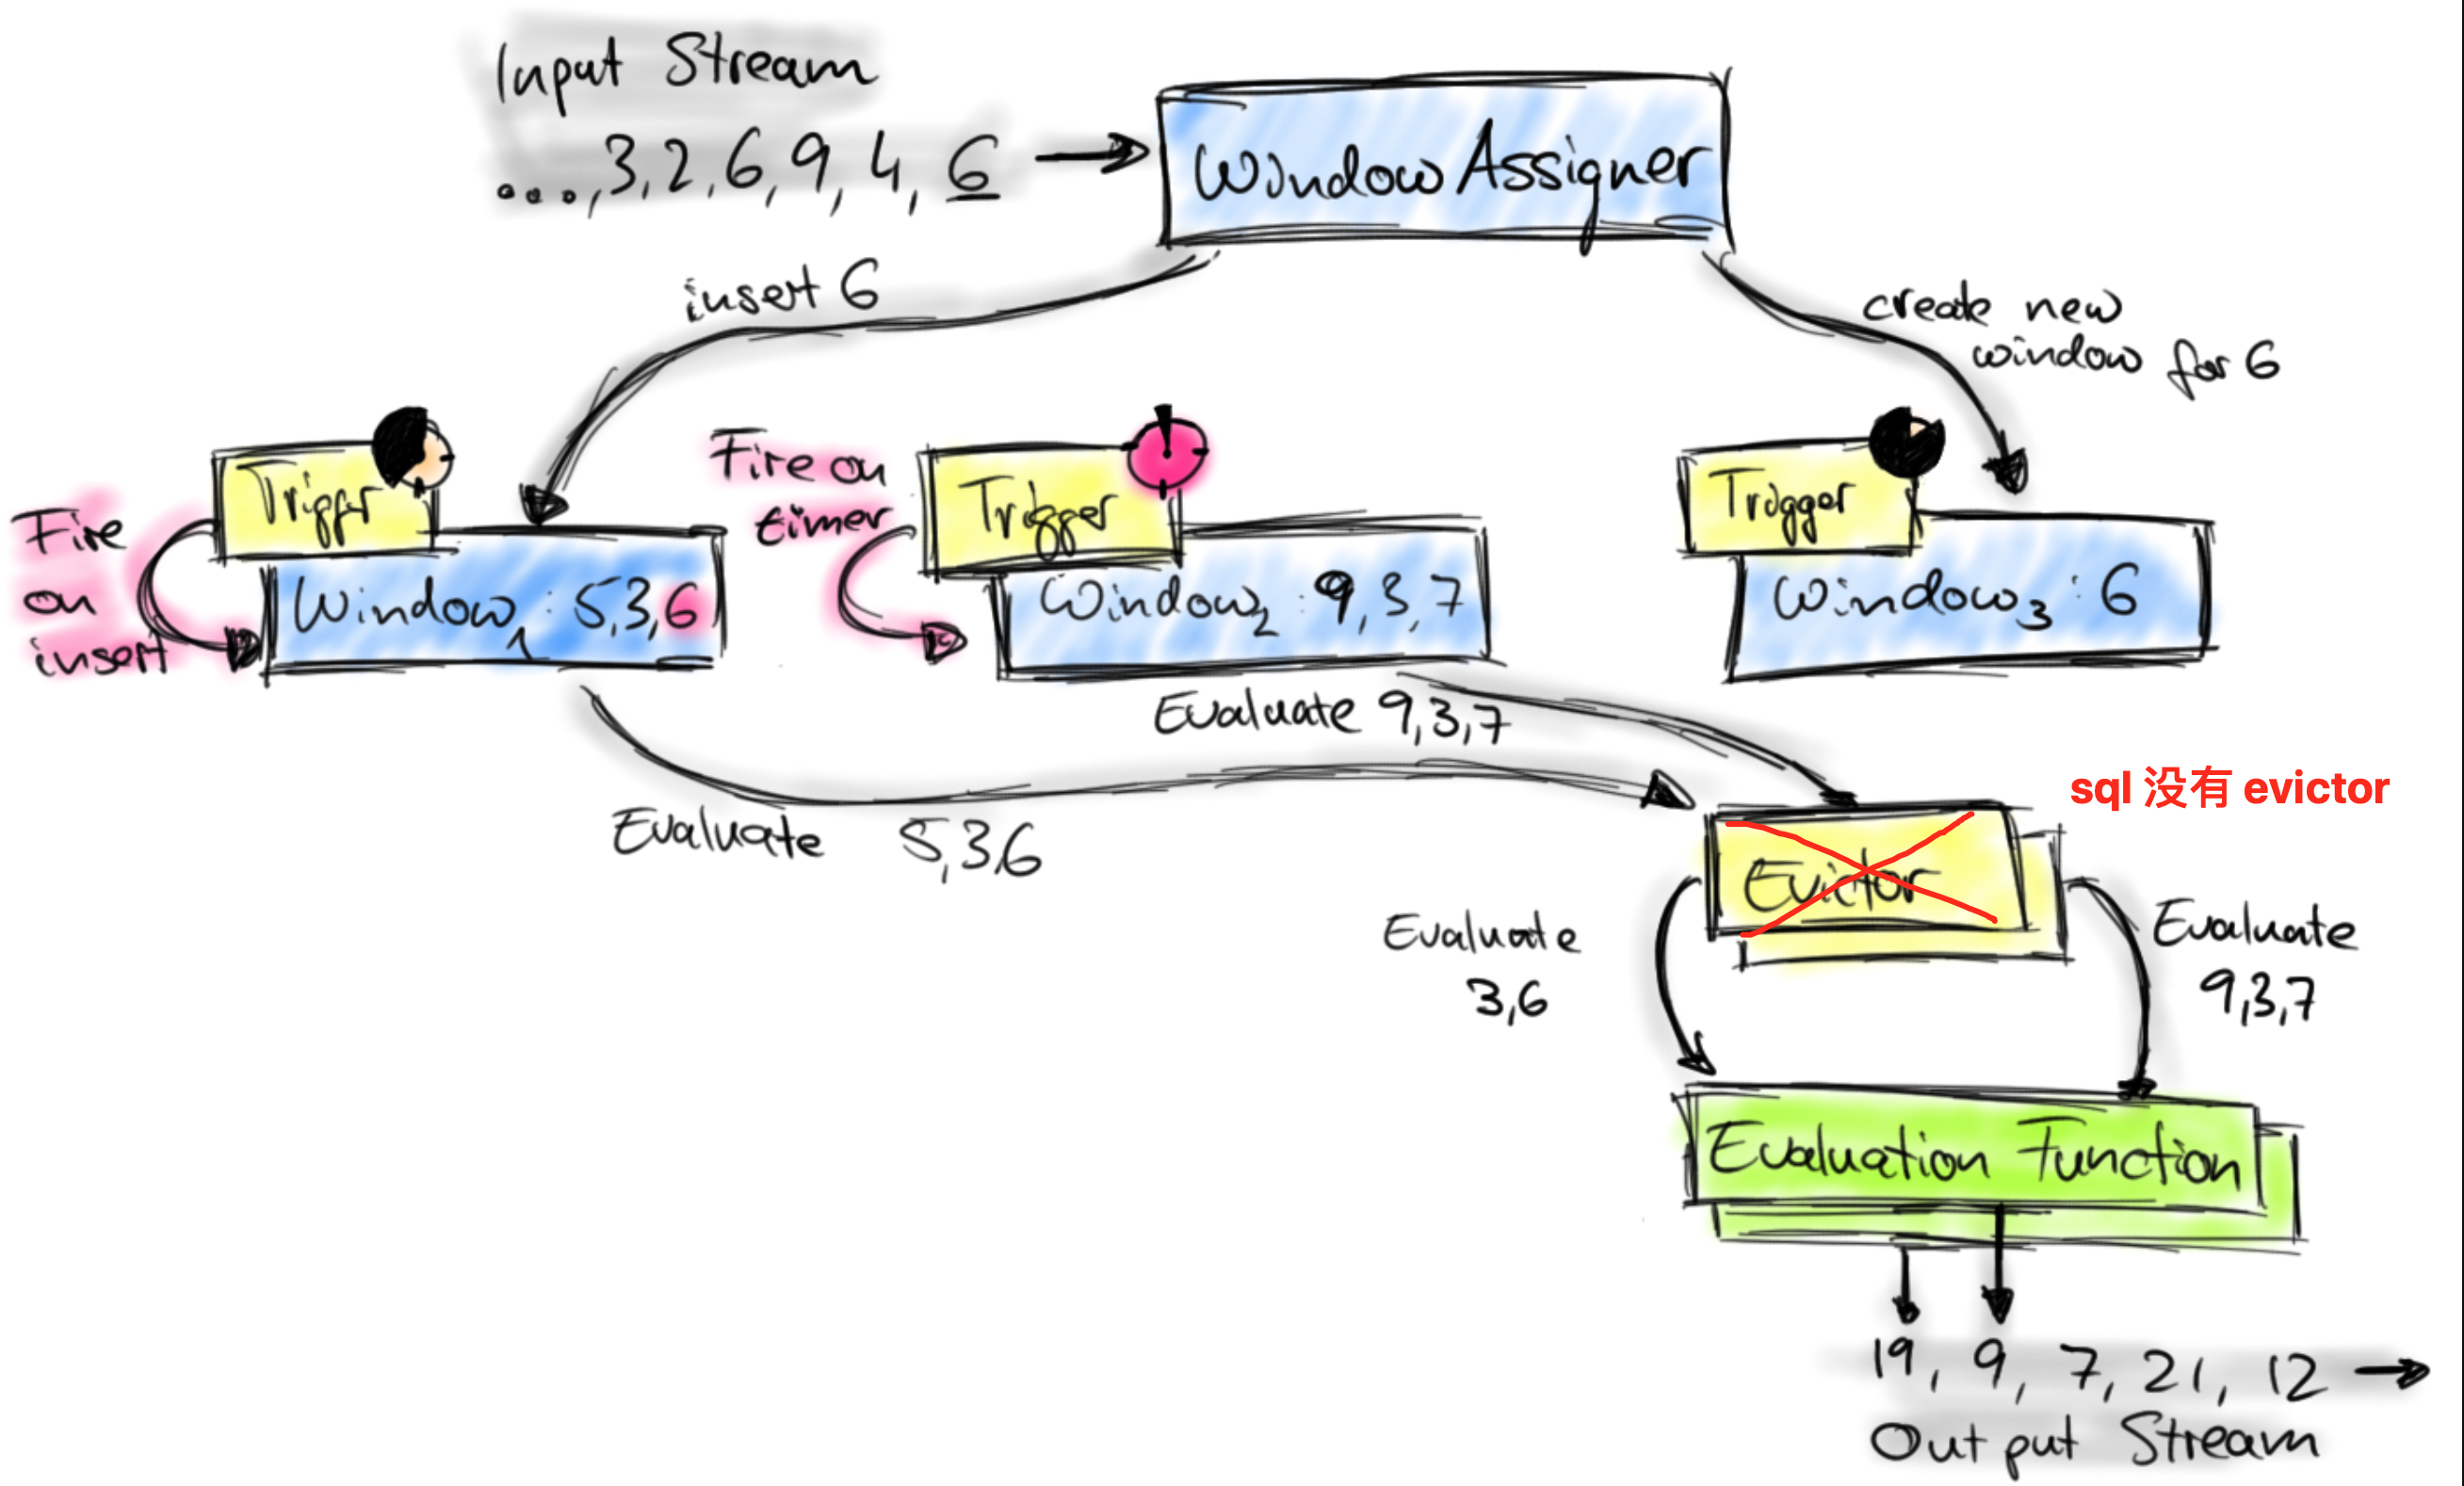 Input Stream
...,3,2,6,9,4,6
Window Assigner
insert 6
create new
window for 6
Trigger
Fire on
insert
Window1 : 5,3,6
Fire on
timer
Trigger
Window2 : 9,3,7
Trigger
Window3 : 6
Evaluate 9,3,7
Evaluate 5,3,6
sql 没有 evictor
Evictor
Evaluate
3,6
Evaluate
9,3,7
Evaluation Function
19, 9, 7, 21, 12
Output Stream